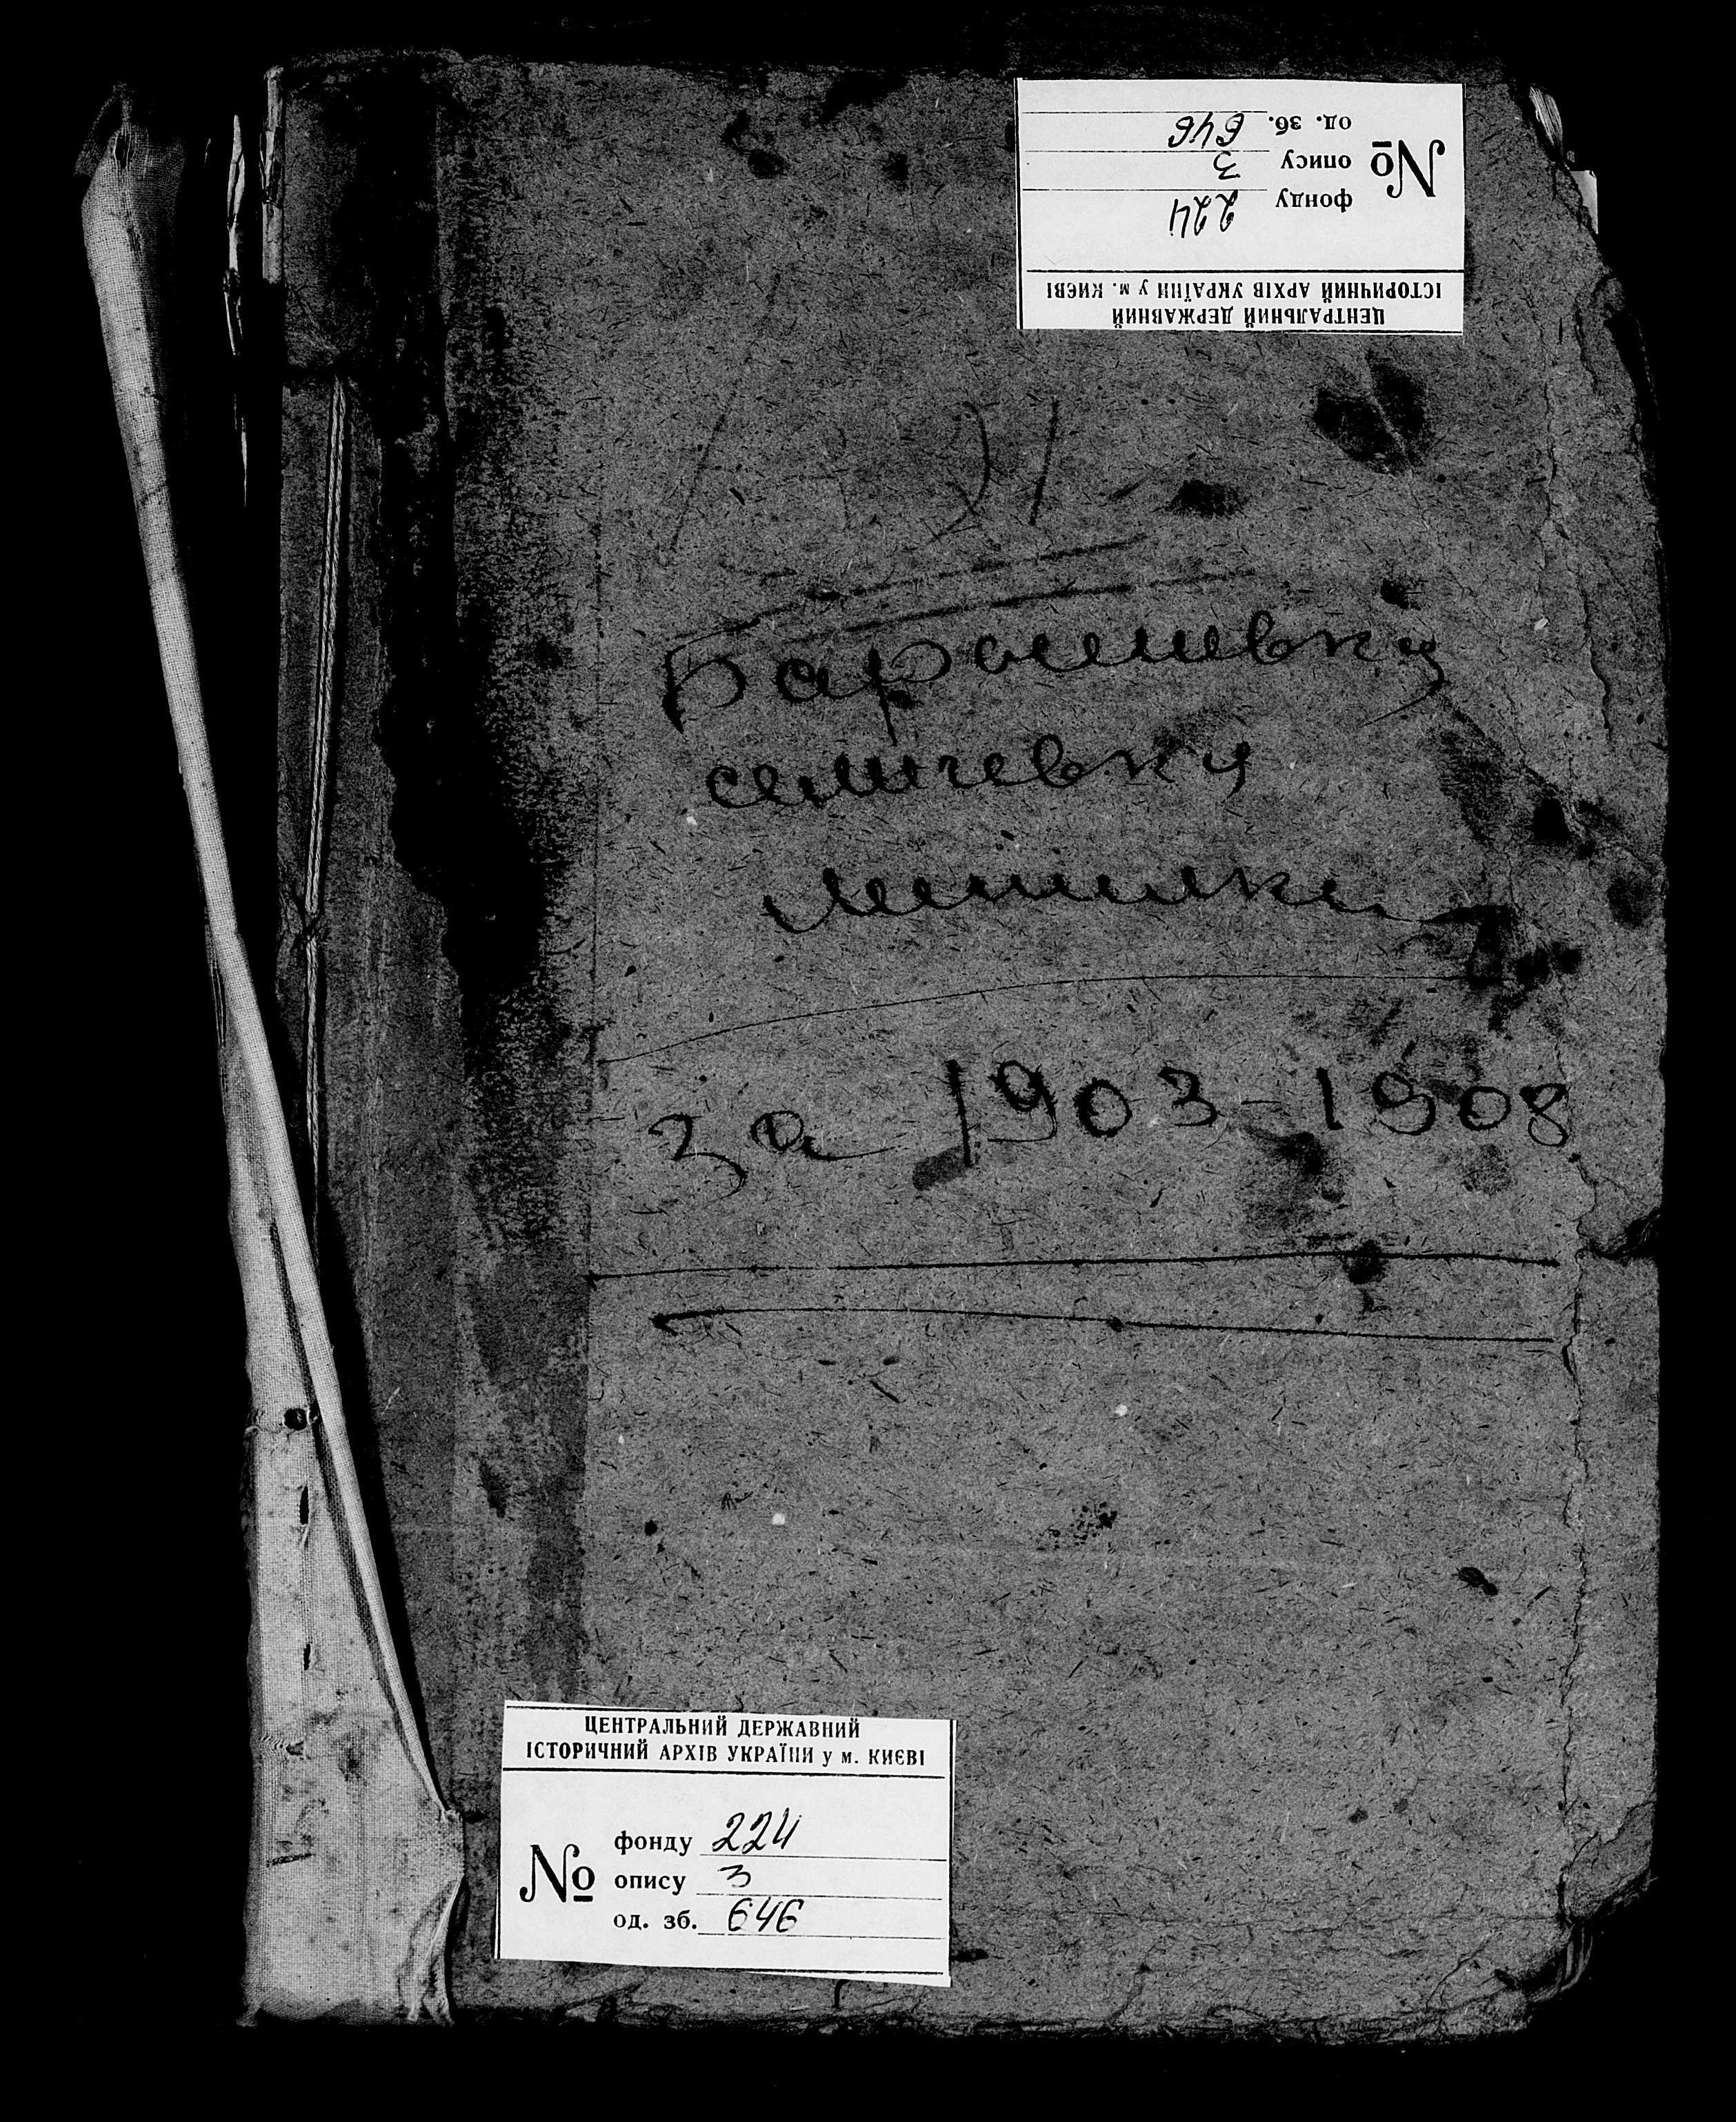 од. зб. 646
опису 3
фонду 224
№
ЦЕНТРАЛЬНИЙ ДЕРЖАВНИЙ
ІСТОРИЧНИЙ АРХІВ УКРАЇНИ у м. КИЄВІ
за 1903-1908
ЦЕНТРАЛЬНИЙ ДЕРЖАВНИЙ
ІСТОРИЧНИЙ АРХІВ УКРАЇНИ у м. КИЄВІ
№
фонду 224
опису 3
од. зб. 646